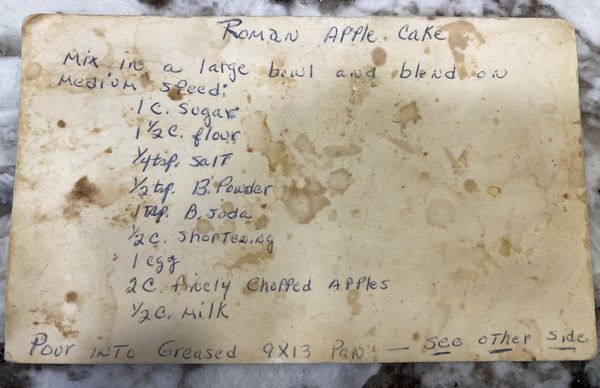 Roman Apple Cake
Mix in a large bowl and blend on
medium speed:
1 C. Sugar
1 1/2 C. flour
1/4 tsp. Salt
1/2 tsp. B. Powder
1 tsp. B. Soda
1/2 C. Shortening
1 egg
2 C. finely Chopped Apples
1/2 C. Milk
Pour into Greased 9X13 Pan — see other side